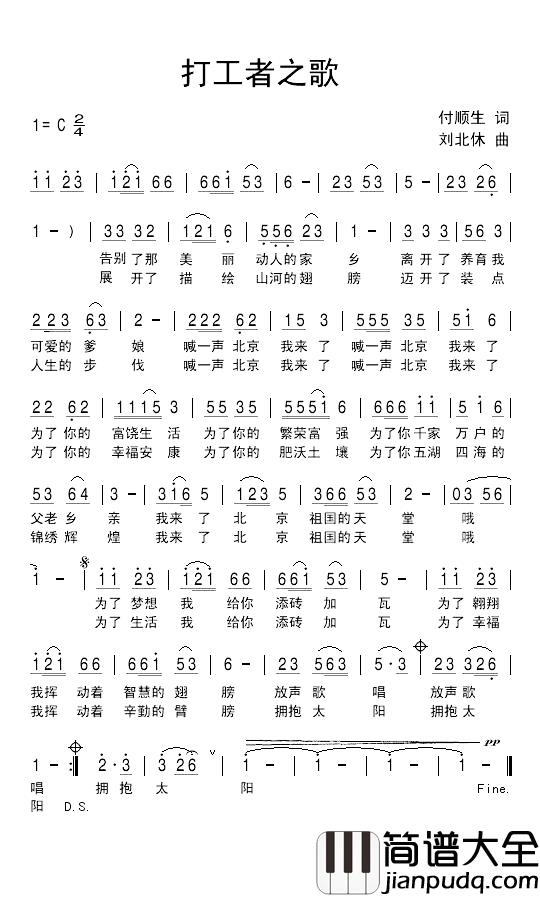 打工者之歌
付顺生 词
1= C 2/4
刘北休 曲
1 1 2 3 | 1 2 1 6 6 | 6 6 1 5 3 | 6 - | 2 3 5 3 | 5 - | 2 3 2 6 |
1 - ) | 3 3 3 2 | 1 2 1 6 | 5 5 6 2 3 | 1 - | 3 3 3 | 5 6 3 |
告别了那 美 丽 动人的家 乡 离开了 养育我
展 开了 描 绘 山河的翅 膀 迈开了 装 点
2 2 3 6 3 | 2 - | 2 2 2 6 2 | 1 5 3 | 3 5 5 3 5 | 5 1 6 |
可爱的 爹 娘 喊一声 北京 我来了 喊一声 北京 我来了
人生的 步 伐 喊一声 北京 我来了 喊一声 北京 我来了
2 2 6 2 | 1 1 1 5 3 | 5 5 3 5 | 5 5 5 1 6 | 6 6 6 1 1 | 5 1 6 |
为了你的 富饶生 活 为了你的 繁荣富 强 为了你 千家 万户的
为了你的 幸福安 康 为了你的 肥沃土 壤 为了你 五湖 四海的
5 3 6 4 | 3 - | 3 1 6 5 | 1 2 3 5 | 3 6 6 5 3 | 2 - | 0 3 5 6 |
父老 乡 亲 我来 了 北 京 祖国的天 堂 哦
锦绣 辉 煌 我来 了 北 京 祖国的天 堂 哦
1 - | 1 1 2 3 | 1 2 1 6 6 | 6 6 1 5 3 | 5 - | 1 1 2 3 |
为了 梦想 我 给你 添砖 加 瓦 为了 翱翔
为了 生活 我 给你 添砖 加 瓦 为了 幸福
1 2 1 6 6 | 6 6 1 5 3 | 6 - | 2 3 5 6 3 | 5 · 3 | 2 3 3 2 6 |
我挥 动着 智慧的 翅 膀 放声 歌 唱 放声歌
我挥 动着 辛勤的 臂 膀 拥抱 太 阳 拥抱太
1 - :‖ 2 · 3 | 3 2 6 v | 1 - | 1 - | 1 - | 1 - ‖ pp
唱 拥 抱 太 阳 Fine.
阳 D.S.
简谱大全
jianpudq.com